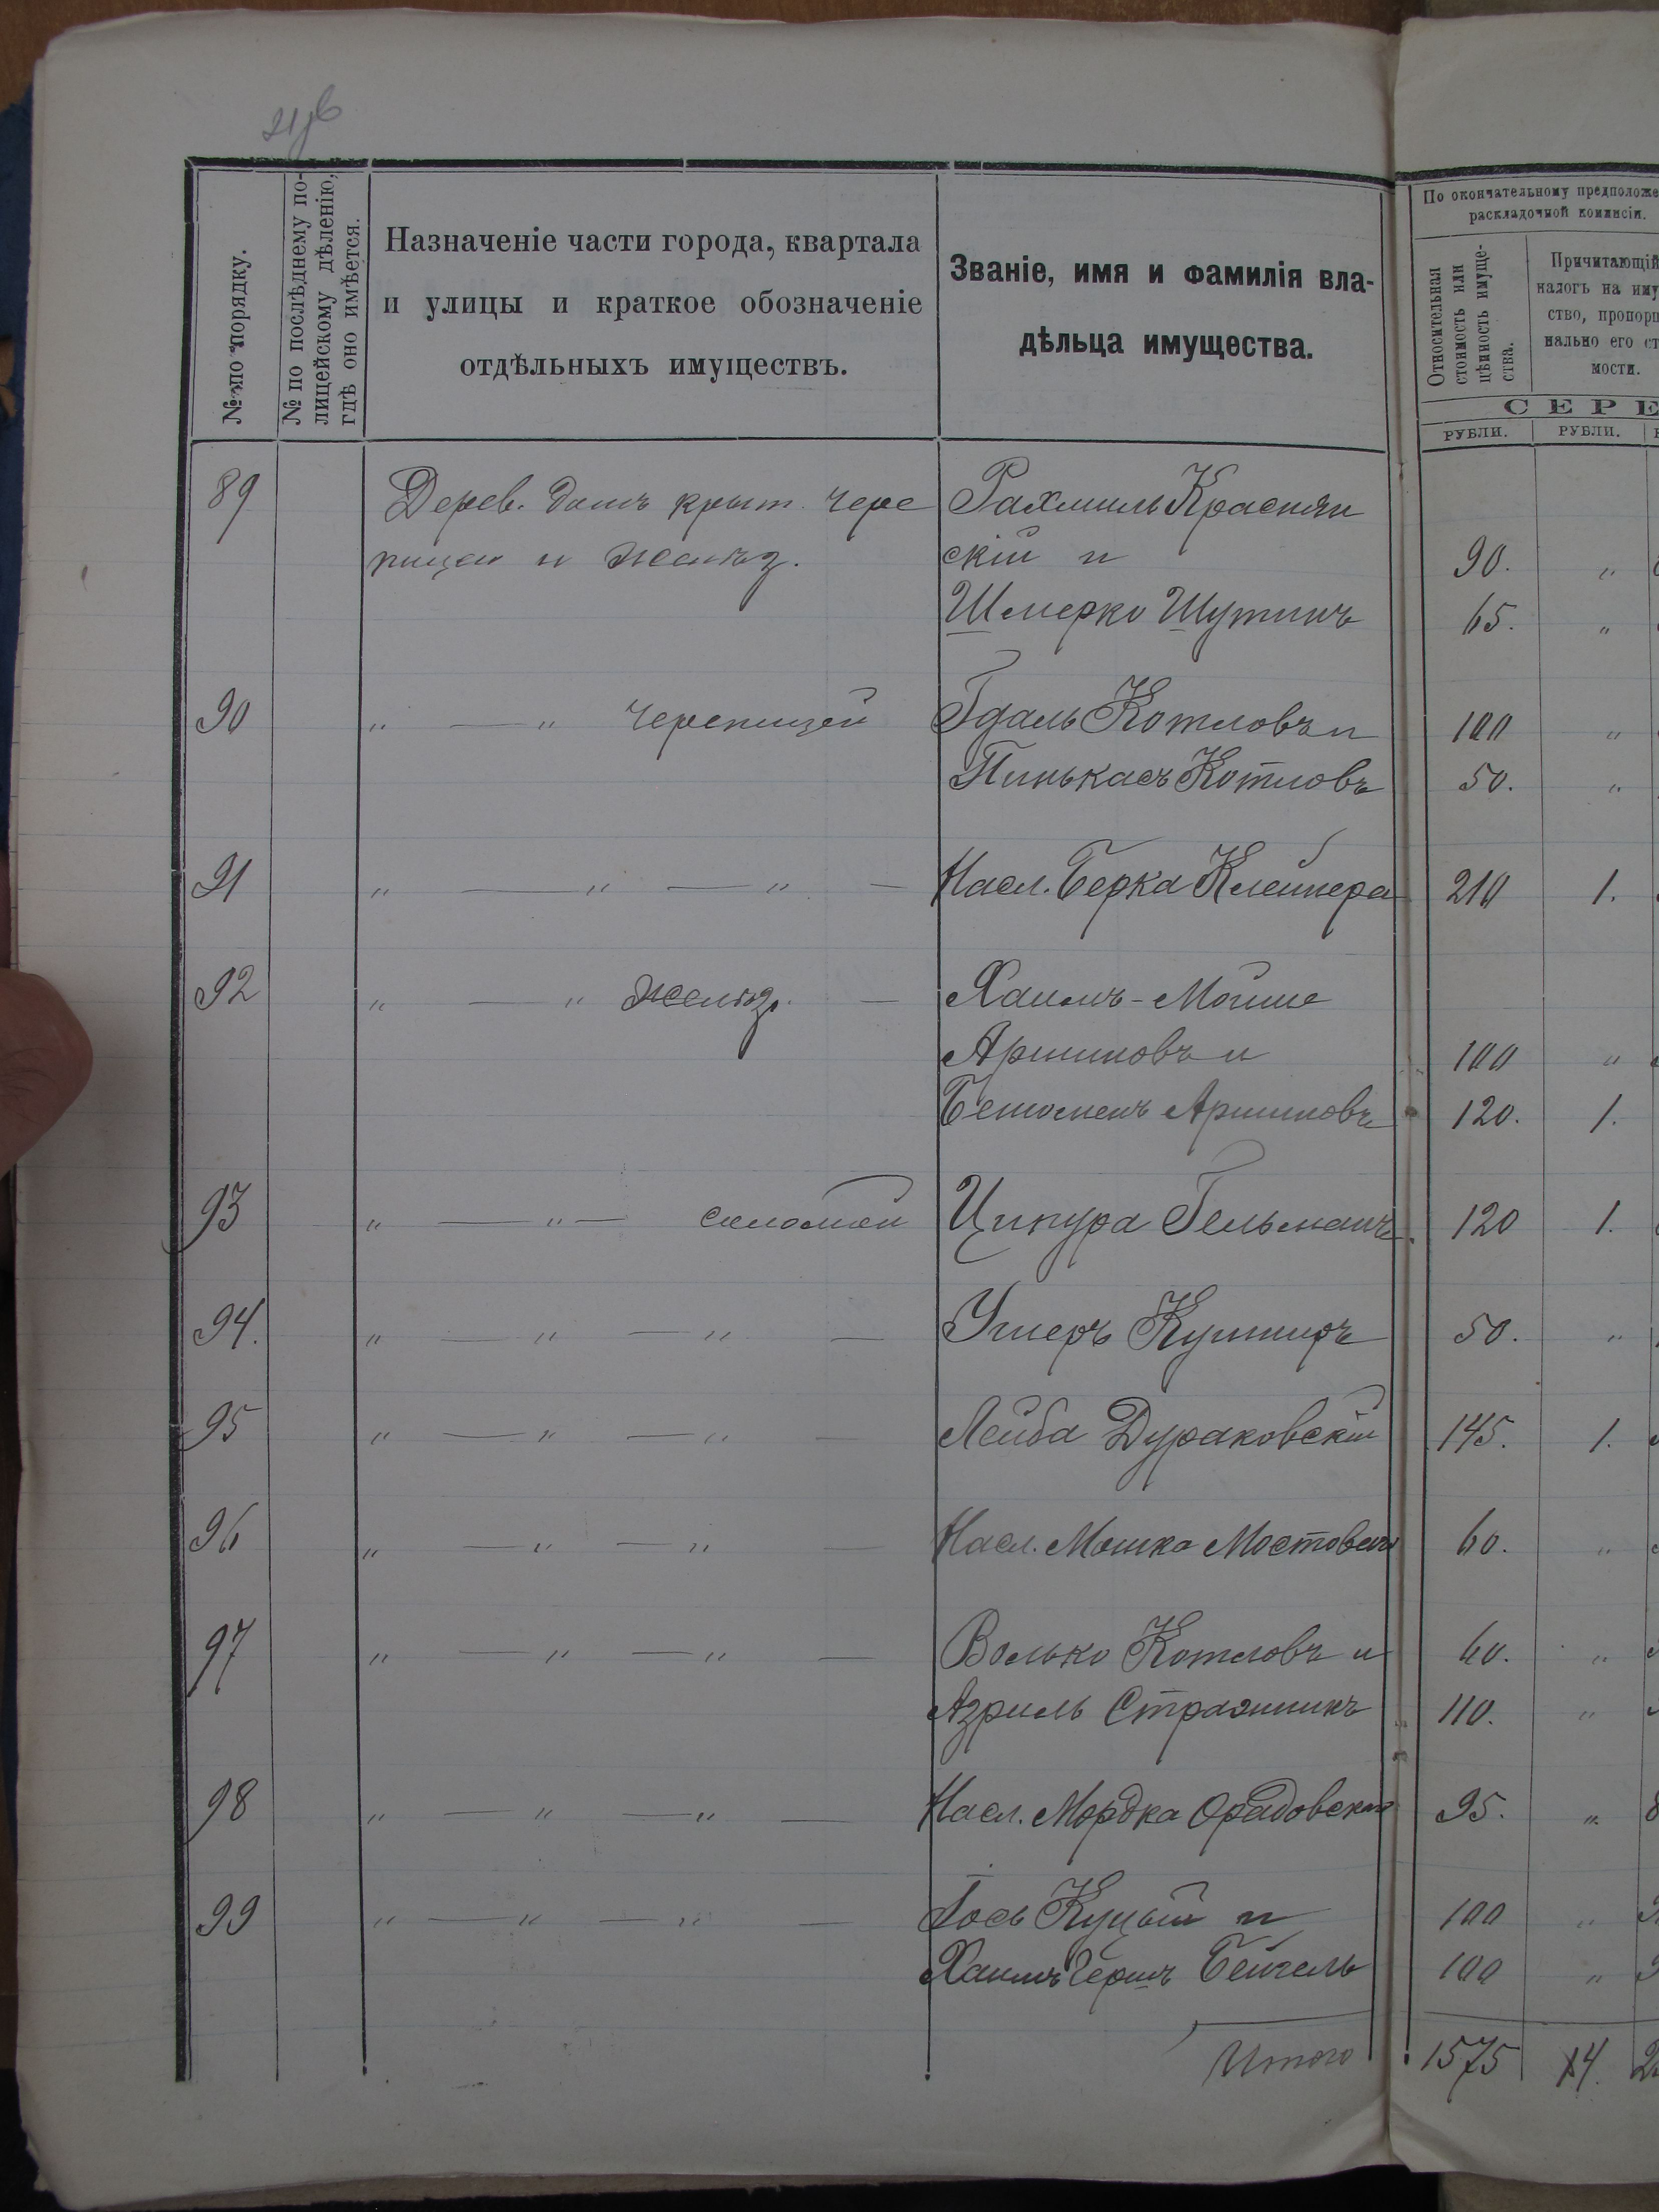 № по порядку.
№ по послѣднему по-
лицейскому дѣленію,
гдѣ оно имѣется.
Назначеніе части города, квартала
и улицы и краткое обозначеніе
отдѣльныхъ имуществъ.
Званіе, имя и фамилія вла-
дѣльца имущества.
По окончательному предположе
раскладочной комисіи.
Относительная
стоимость или
цѣнность имуще-
ства.
Причитающій
налогъ на иму
ство, пропорц
нально его ст
мости.
СЕРЕ
РУБЛИ. РУБЛИ.
89 Дерев. домъ крыт. чере Рахмиль Краснян
пицею и желѣз. скій и 90. "
Шмерко Шутинъ 65. "
90 " — " черепицей Гдаль Котловъ и 100 "
Пинькасъ Котловъ 50. "
91 " — " — " — Насл. Берка Клейнера 210 1.
92 " — " желѣз. — Хаимъ-Мойше
Аршиновъ и 100 "
Аршиновъ 120. 1.
93 " — " — соломой Ципура Гельманъ 120 1.
94. " — " — " — Ушеръ Кушниръ 50. "
95 " — " — " — Лейба Дураковскій 145. 1.
96 " — " — " — Насл. Мошка 60. "
97 " — " — " — Волько Котловъ и 60. "
Азриль Стражникъ 110. "
98 " — " — " — Насл. Мордка 95. "
99 " — " — " — Іось Куцый и 100 "
Хаимъ Герш Бейгель 100 "
Итого 1575 14.